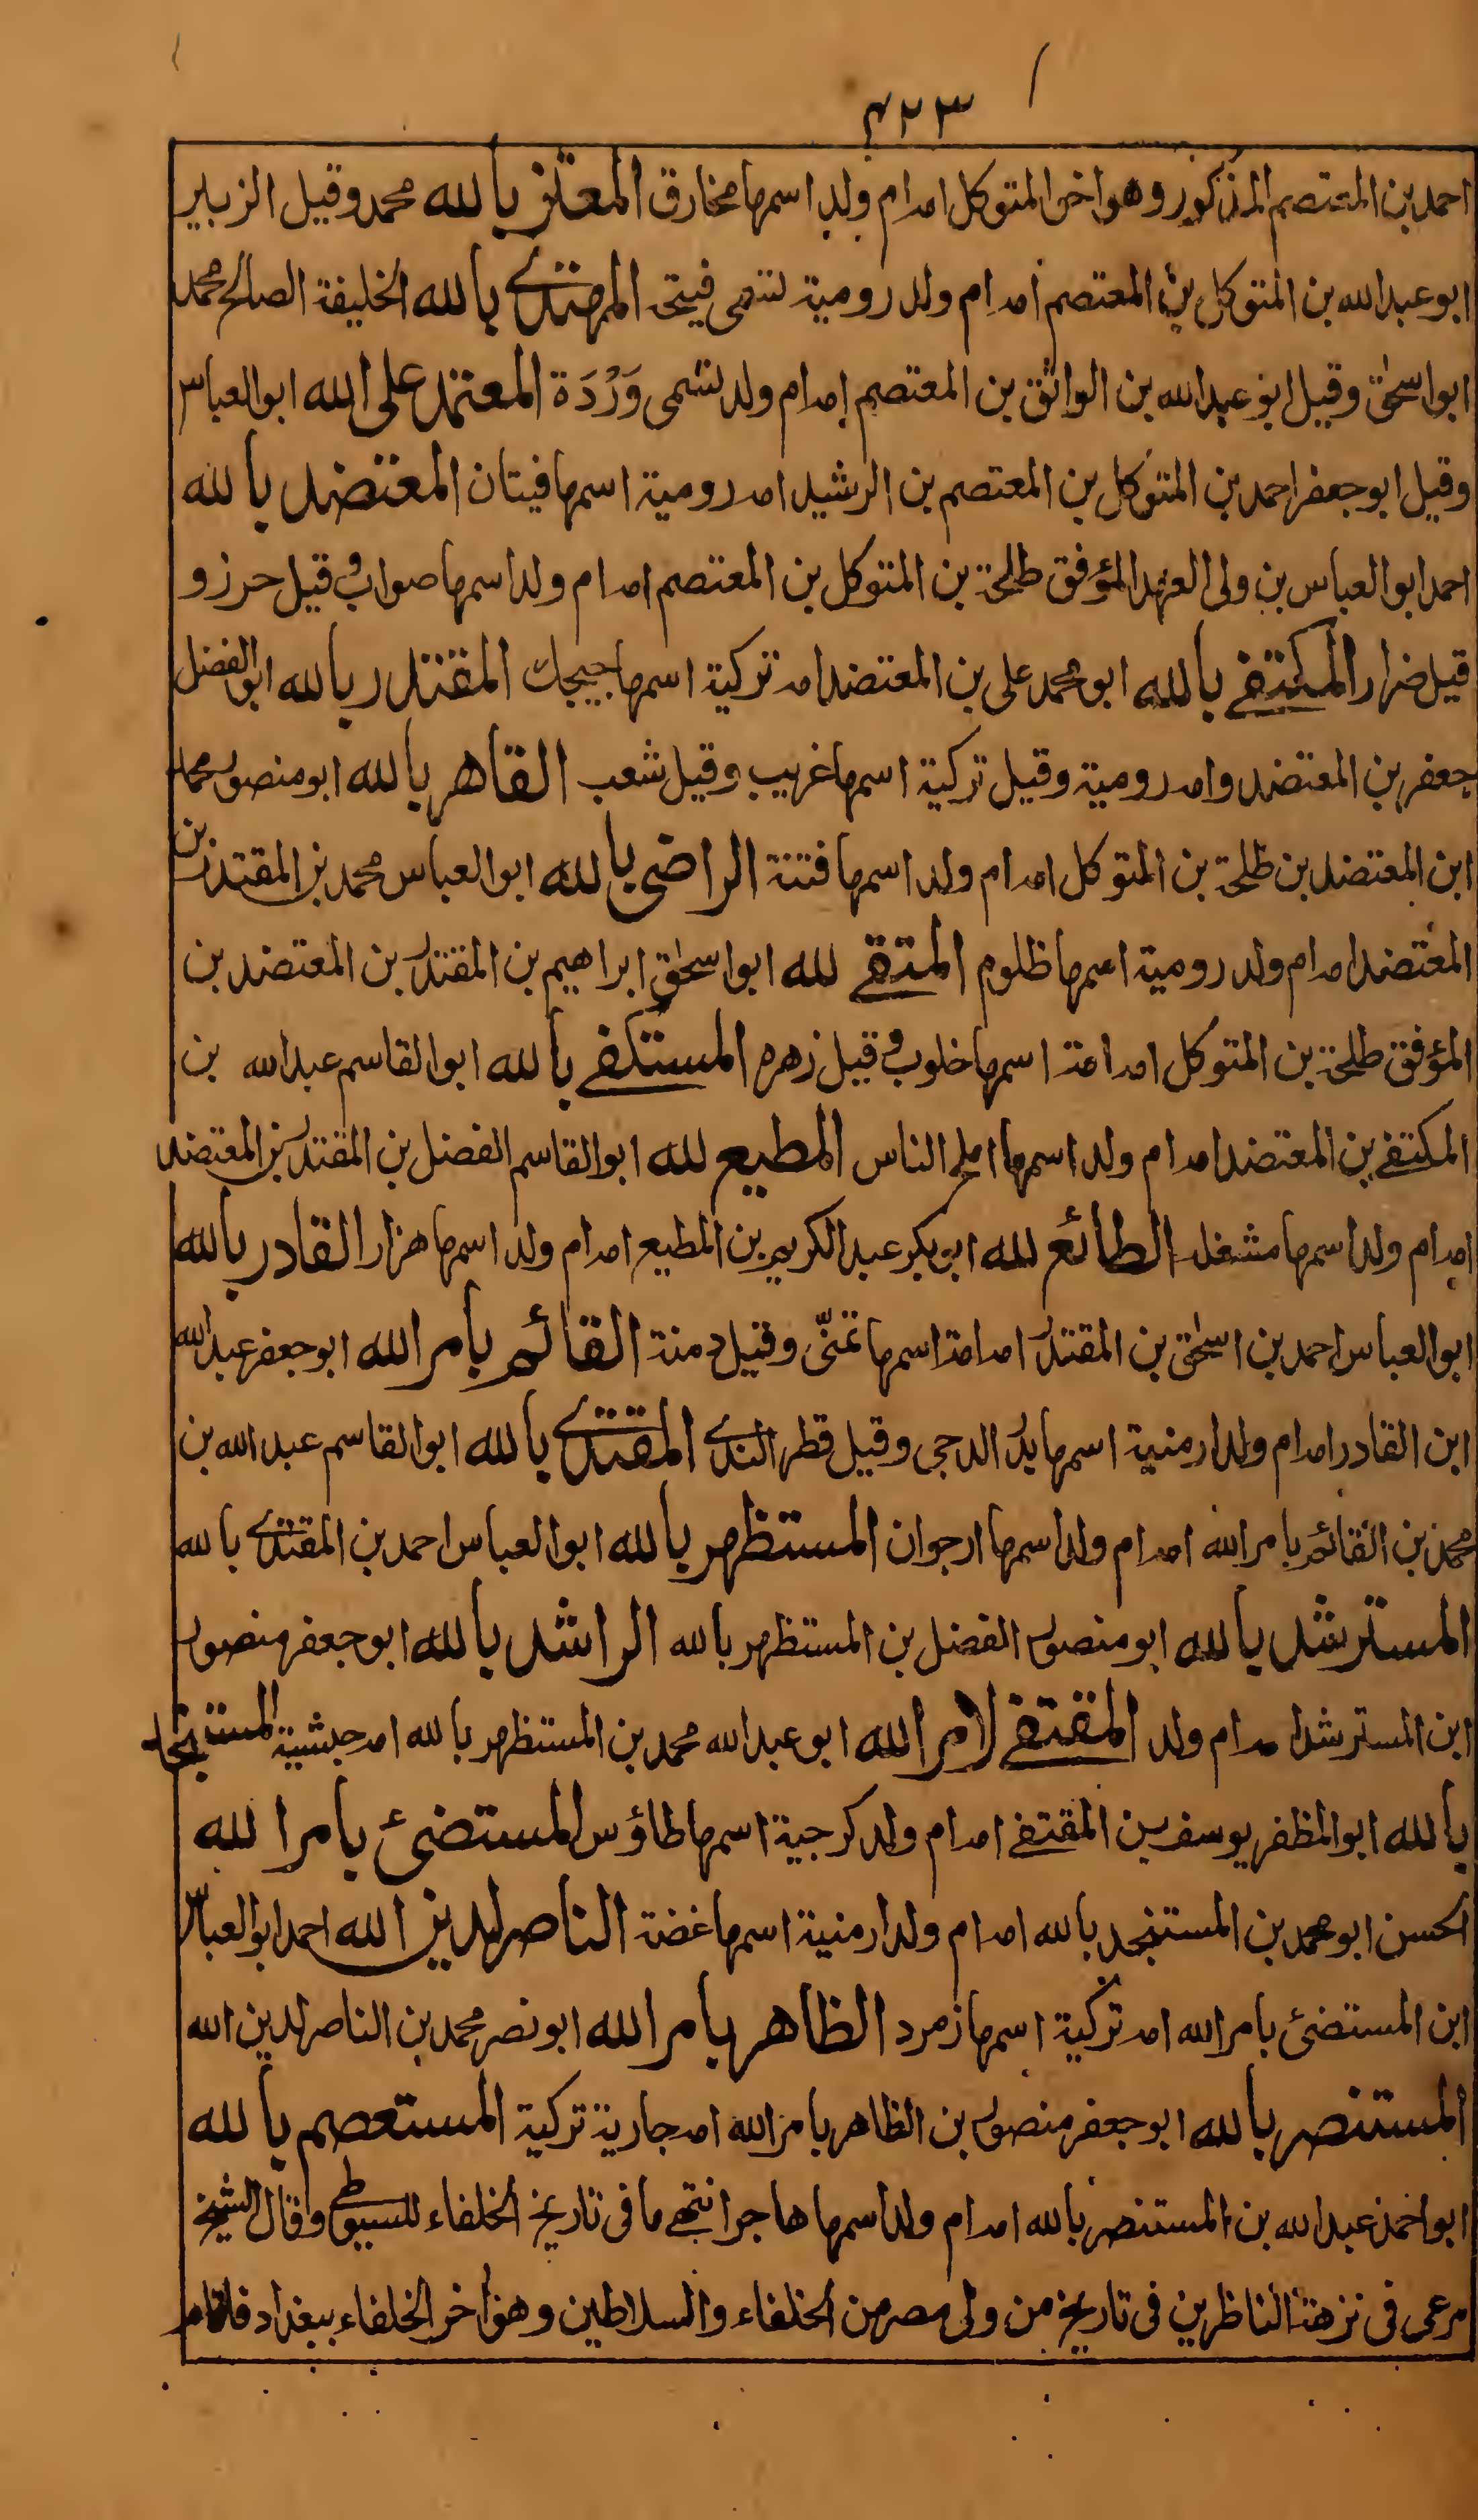 ٤٢٣
احمد بن المعتصم المذكور وهو اخو المتوكل امه ام ولد اسمها مخارق المعتز بالله محمد وقيل الزبير
ابو عبد الله بن المتوكل بن المعتصم امه ام ولد رومية تسمى قبيحة المهتدى بالله الخليفة الصالح محمد
ابو اسحٰق وقيل ابو عبد الله بن الواثق بن المعتصم امه ام ولد تسمى وَرْدَة المعتمد على الله ابو العباس
وقيل ابو جعفر احمد بن المتوكل بن المعتصم بن الرشيد امه رومية اسمها فيتان المعتضد بالله
احمد ابو العباس بن ولى العهد المؤفق طلحة بن المتوكل بن المعتصم امه ام ولد اسمها صواب وقيل حرز و
قيل ضرار المكتفے بالله ابو محمد على بن المعتضد امه تركية اسمها جيجك المقتدر بالله ابو الفضل
جعفر بن المعتضد وامه رومية وقيل تركية اسمها غريب وقيل شعب القاهر بالله ابو منصور محمد
ابن المعتضد بن طلحة بن المتوكل امه ام ولد اسمها فتنة الراضى بالله ابو العباس محمد بن المقتدر بن
المعتضد امه ام ولد رومية اسمها ظلوم المتقے لله ابو اسحٰق ابراهيم بن المقتدر بن المعتضد بن
المؤفق طلحة بن المتوكل امه امة اسمها خلوب وقيل زهره المستكفے بالله ابو القاسم عبد الله بن
المكتفے بن المعتضد امه ام ولد اسمها املح الناس المطيع لله ابو القاسم الفضل بن المقتدر بن المعتضد
امه ام ولد اسمها مشغله الطائع لله ابو بكر عبد الكريم بن المطيع امه ام ولد اسمها هزار القادر بالله
ابو العباس احمد بن اسحٰق بن المقتدر امه امة اسمها تمنّى وقيل دمنة القائم بامر الله ابو جعفر عبد الله
ابن القادر امه ام ولد ارمنية اسمها بدر الدجى وقيل قطر الندے المقتدے بالله ابو القاسم عبد الله بن
محمد بن القائم بامر الله امه ام ولد اسمها ارجوان المستظهر بالله ابو العباس احمد بن المقتدے بالله
المسترشد بالله ابو منصور الفضل بن المستظهر بالله الراشد بالله ابو جعفر منصور
ابن المسترشد امه ام ولد المقتفے لامر الله ابو عبد الله محمد بن المستظهر بالله امه حبشية المستنجد
بالله ابو المظفر يوسف بن المقتفے امه ام ولد كرجية اسمها طاؤس المستضئ بامر الله
الحسن ابو محمد بن المستنجد بالله امه ام ولد ارمنية اسمها غضة الناصر لدين الله احمد ابو العباس
ابن المستضئ بامر الله امه تركية اسمها زمرد الظاهر بامر الله ابو نصر محمد بن الناصر لدين الله
المستنصر بالله ابو جعفر منصور بن الظاهر بامر الله امه جارية تركية المستعصم بالله
ابو احمد عبد الله بن المستنصر بالله امه ام ولد اسمها هاجر انتهے ما فى تاريخ الخلفاء للسيوطے وقال الشيخ
مرعى فى نزهة الناظرين فى تاريخ من ولى مصر من الخلفاء والسلاطين وهو اخر الخلفاء ببغداد